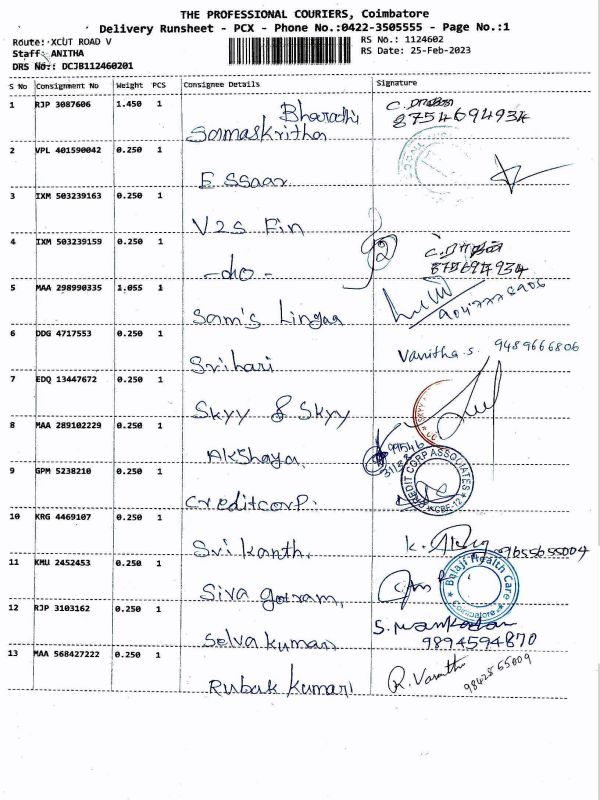 THE PROFESSIONAL COURIERS, Coimbatore
Delivery Runsheet - PCX - Phone No.:0422-3505555 - Page No.:1
Route: XCUT ROAD V RS No.: 1124602
Staff: ANITHA RS Date: 25-Feb-2023
DRS No.: DCJB112460201
S No Consignment No Weight PCS Consignee Details Signature
1 RJP 3087606 1.450 1 Bharadhi
Samaskritha 8754694934
2 VPL 401590042 0.250 1
Essaar
3 IXM 503239163 0.250 1
V2S Fin
4 IXM 503239159 0.250 1
-do- 8754694934
5 MAA 298990335 1.055 1
Sam's Lingaa
6 DDG 4717553 0.250 1 Vanitha.s. 9489666806
Srihari
7 EDQ 13447672 0.250 1
Skyy & Skyy SKYY
8 MAA 289102229 0.250 1
Akshaya.
9 GPM 5238210 0.250 1 CREDIT CORP ASSOCIATES
Creditcorp. CBE-12
10 KRG 4469107 0.250 1
Srikanth. 9655655004
11 KMU 2452453 0.250 1 Balaji Health Care
Siva gotram, Coimbatore
12 RJP 3103162 0.250 1
Selva kumar 9894594870
13 MAA 568427222 0.250 1 R. Vanitha 9842865009
Rubak kumari